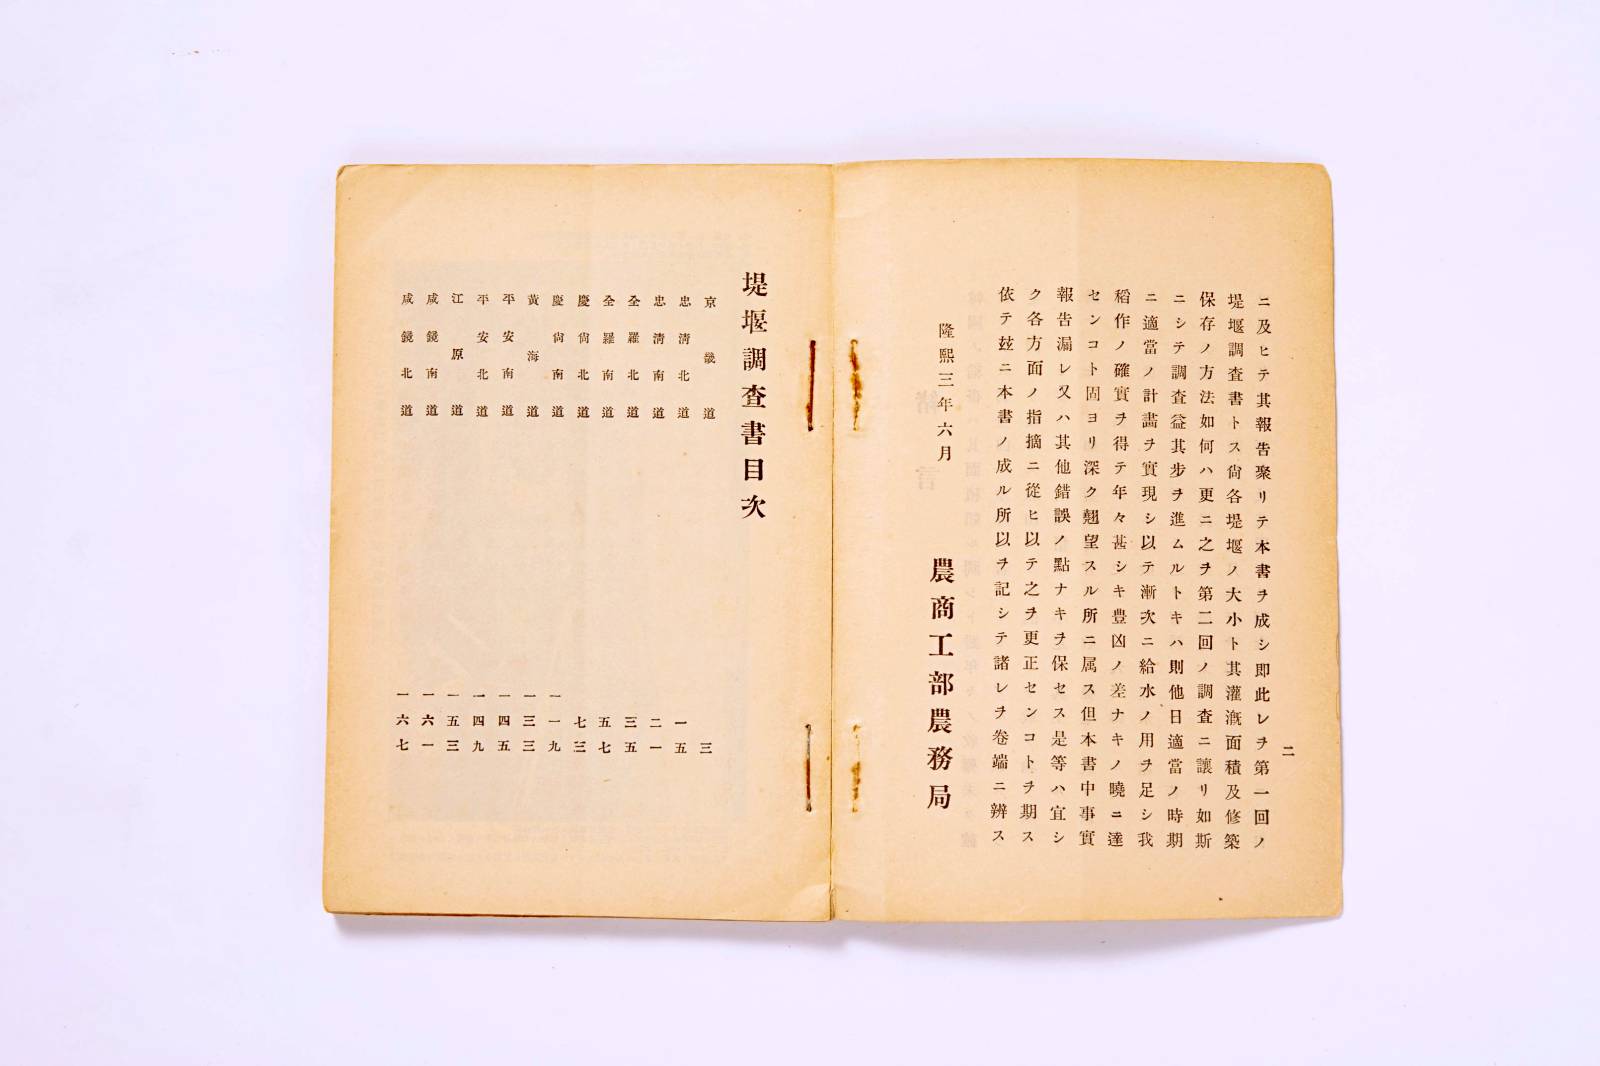 二
ニ及ヒテ其報告聚リテ本書ヲ成シ即此レヲ第一回ノ
堤堰調査書トス尙各堤堰ノ大小ト其灌漑面積及修築
保存ノ方法如何ハ更ニ之ヲ第二回ノ調査ニ讓リ如斯
ニシテ調査益其步ヲ進ムルトキハ則他日適當ノ時期
ニ適當ノ計畫ヲ實現シ以テ漸次ニ給水ノ用ヲ足シ我
稻作ノ確實ヲ得テ年々甚シキ豊凶ノ差ナキノ曉ニ達
センコト固ヨリ深ク翹望スル所ニ属ス但本書中事實
報告漏レ又ハ其他錯誤ノ點ナキヲ保セス是等ハ宜シ
ク各方面ノ指摘ニ從ヒ以テ之ヲ更正センコトヲ期ス
依テ玆ニ本書ノ成ル所以ヲ記シテ諸レヲ卷端ニ辨ス
隆熙三年六月
農商工部農務局
堤堰調查書目次
京畿道 三
忠淸北道 一五
忠淸南道 二一
全羅北道 三五
全羅南道 五七
慶尙北道 七三
慶尙南道 一一九
黃海道 一三三
平安南道 一四五
平安北道 一四九
江原道 一五三
咸鏡南道 一六一
咸鏡北道 一六七